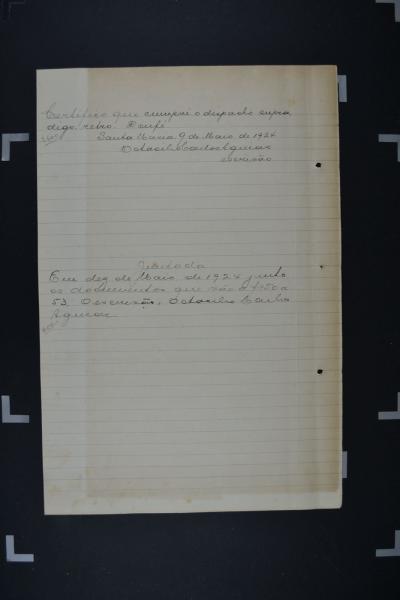 Certifico que cumpri o depacho supra,
digo, retro. Doufé.
Santa Maria 9 de Maio de 1924
Octacilio Carlos Aguiar
escrivão
Juntada
Em dez de Maio de 1924, junto
os documentos que vão á fs 50 a
53. O escrivão, Octacilio Carlos
Aguiar